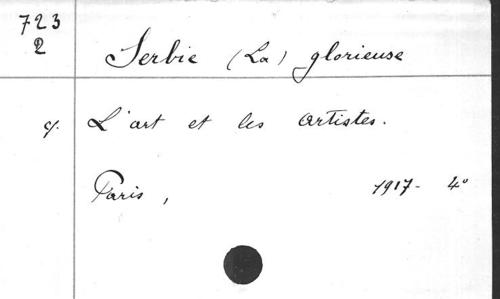 723
2
Serbie (La) glorieuse
cf. L'art et les artistes.
Paris, 1917- 4°